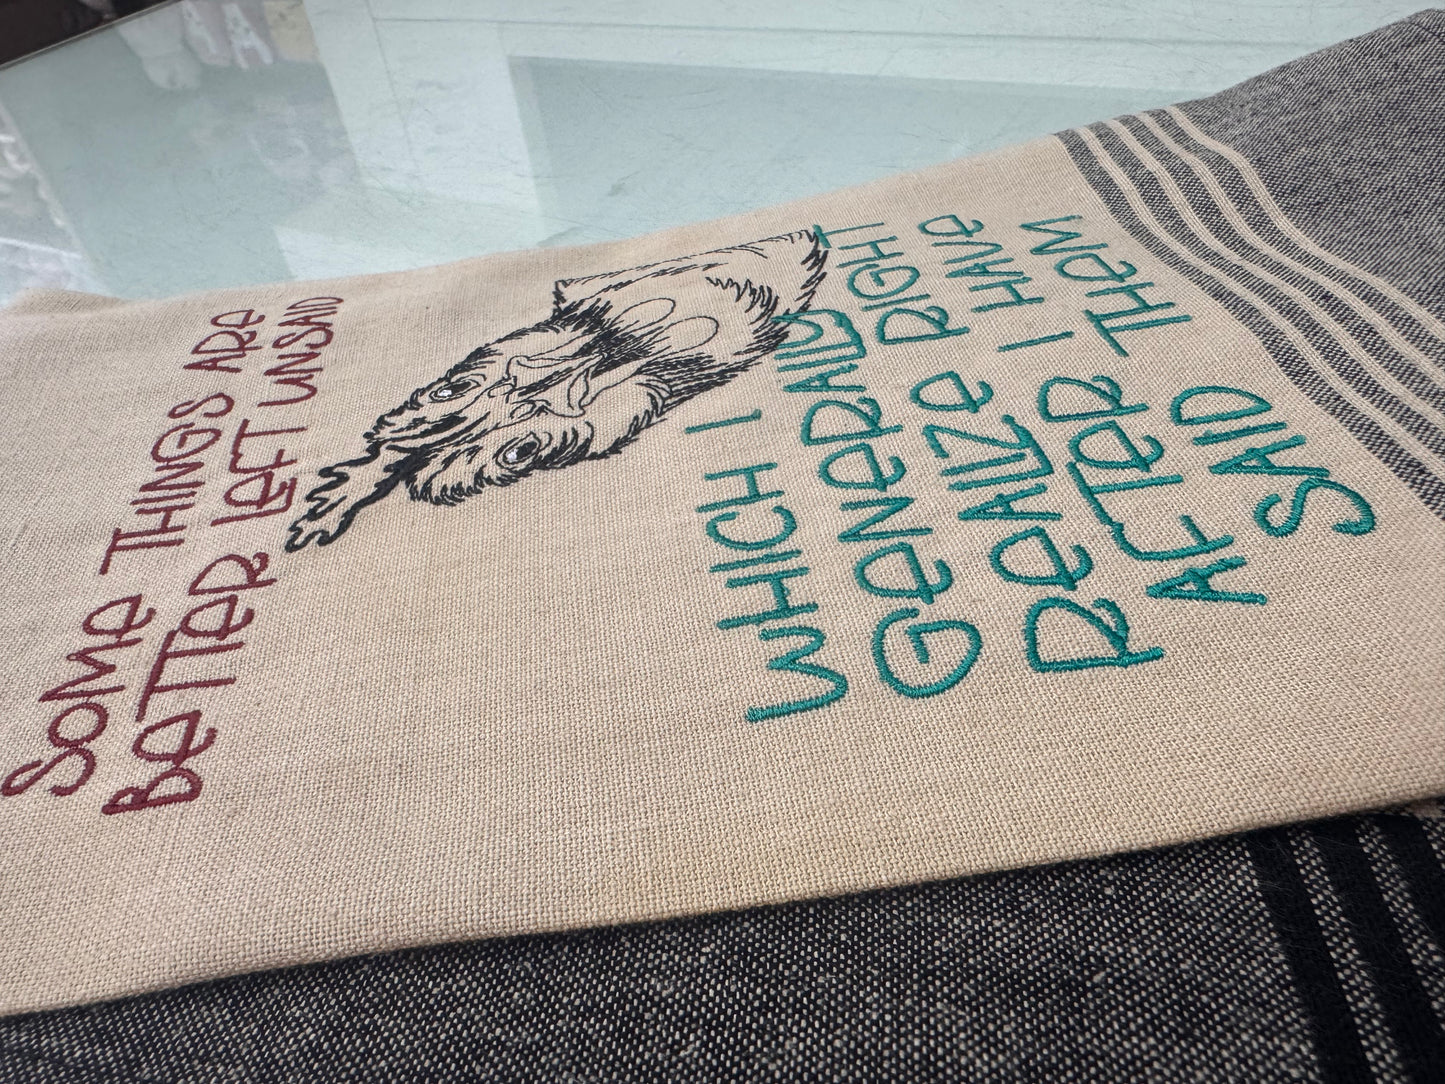 SOMe THINGS ARe
BeTTeR LeFT UNSAID
WHICH I
GeNeRALLY
ReALIZe RIGHT
AFTeR I HAVe
SAID THeM